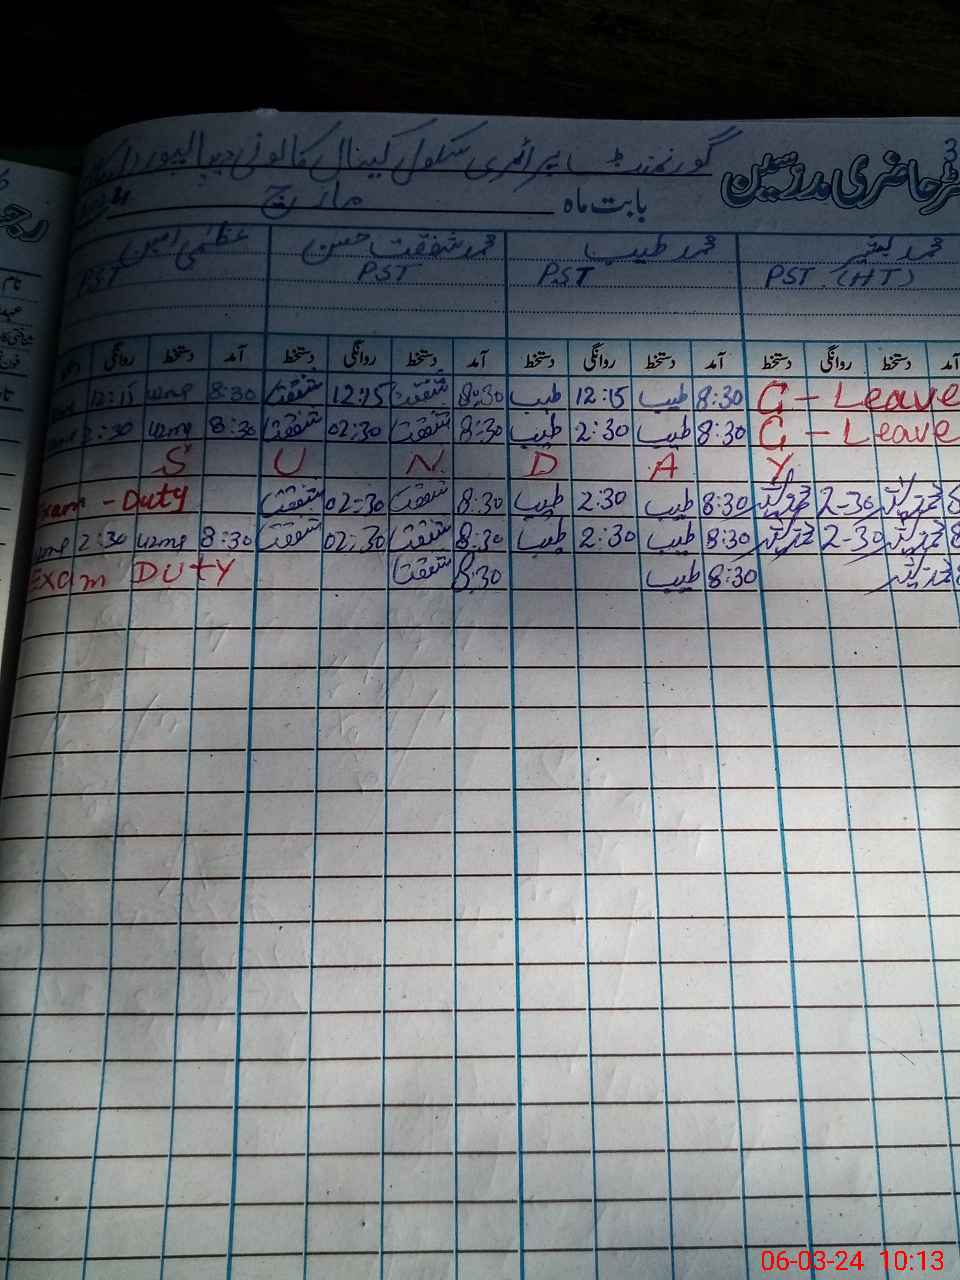 رجسٹر حاضری مدرسین
گورنمنٹ پرائمری سکول کینال کالونی دیپالپور
بابت ماہ مارچ
محمد طیب محمد شفقت حسن عظمیٰ امین
PST (HT) PST PST PST
آمد دستخط روانگی دستخط آمد دستخط روانگی دستخط آمد دستخط روانگی دستخط آمد دستخط روانگی
C - Leave 8:30 طیب 12:15 طیب 8:30 شفقت 12:15 شفقت 8:30 uzma 12:15
C - Leave 8:30 طیب 2:30 طیب 8:30 شفقت 02:30 شفقت 8:30 uzma 2:30
S U N D A Y
2-30 8:30 طیب 2:30 طیب 8:30 شفقت 02-30 شفقت Exam - Duty
2-30 8:30 طیب 2:30 طیب 8:30 شفقت 02:30 شفقت 8:30 uzma 2:30 uzma
8:30 طیب 8:30 شفقت Exam DUTY
06-03-24 10:13